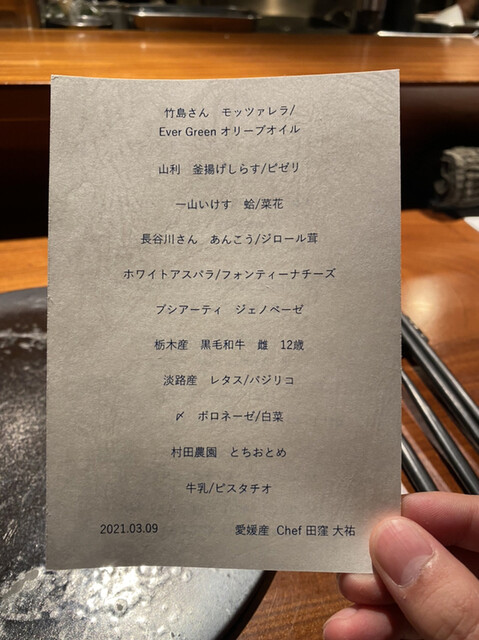 竹島さん　モッツァレラ/
Ever Green オリーブオイル
山利　釜揚げしらす/ピゼリ
一山いけす　蛤/菜花
長谷川さん　あんこう/ジロール茸
ホワイトアスパラ/フォンティーナチーズ
ブシアーティ　ジェノベーゼ
栃木産　黒毛和牛　雌　12歳
淡路産　レタス/バジリコ
〆　ボロネーゼ/白菜
村田農園　とちおとめ
牛乳/ピスタチオ
2021.03.09　愛媛産 Chef 田窪 大祐